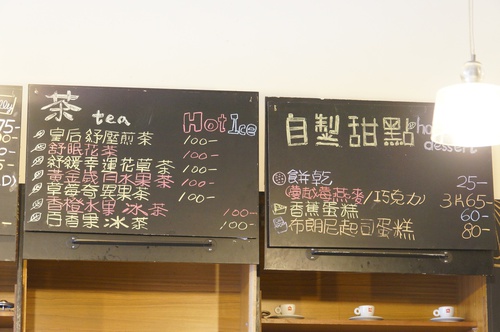 茶 tea Hot Ice
皇后紓壓煎茶 100-
舒眠花茶 100-
紓緩幸運花草茶 100-
黃金歲月水果茶 100-
草莓奇異果茶 100-
香橙水果冰茶 100-
百香果冰茶 100-
自製甜點 dessert
餅乾 25-
蔓越莓燕麥/巧克力 3片65-
香蕉蛋糕 60-
布朗尼起司蛋糕 80-